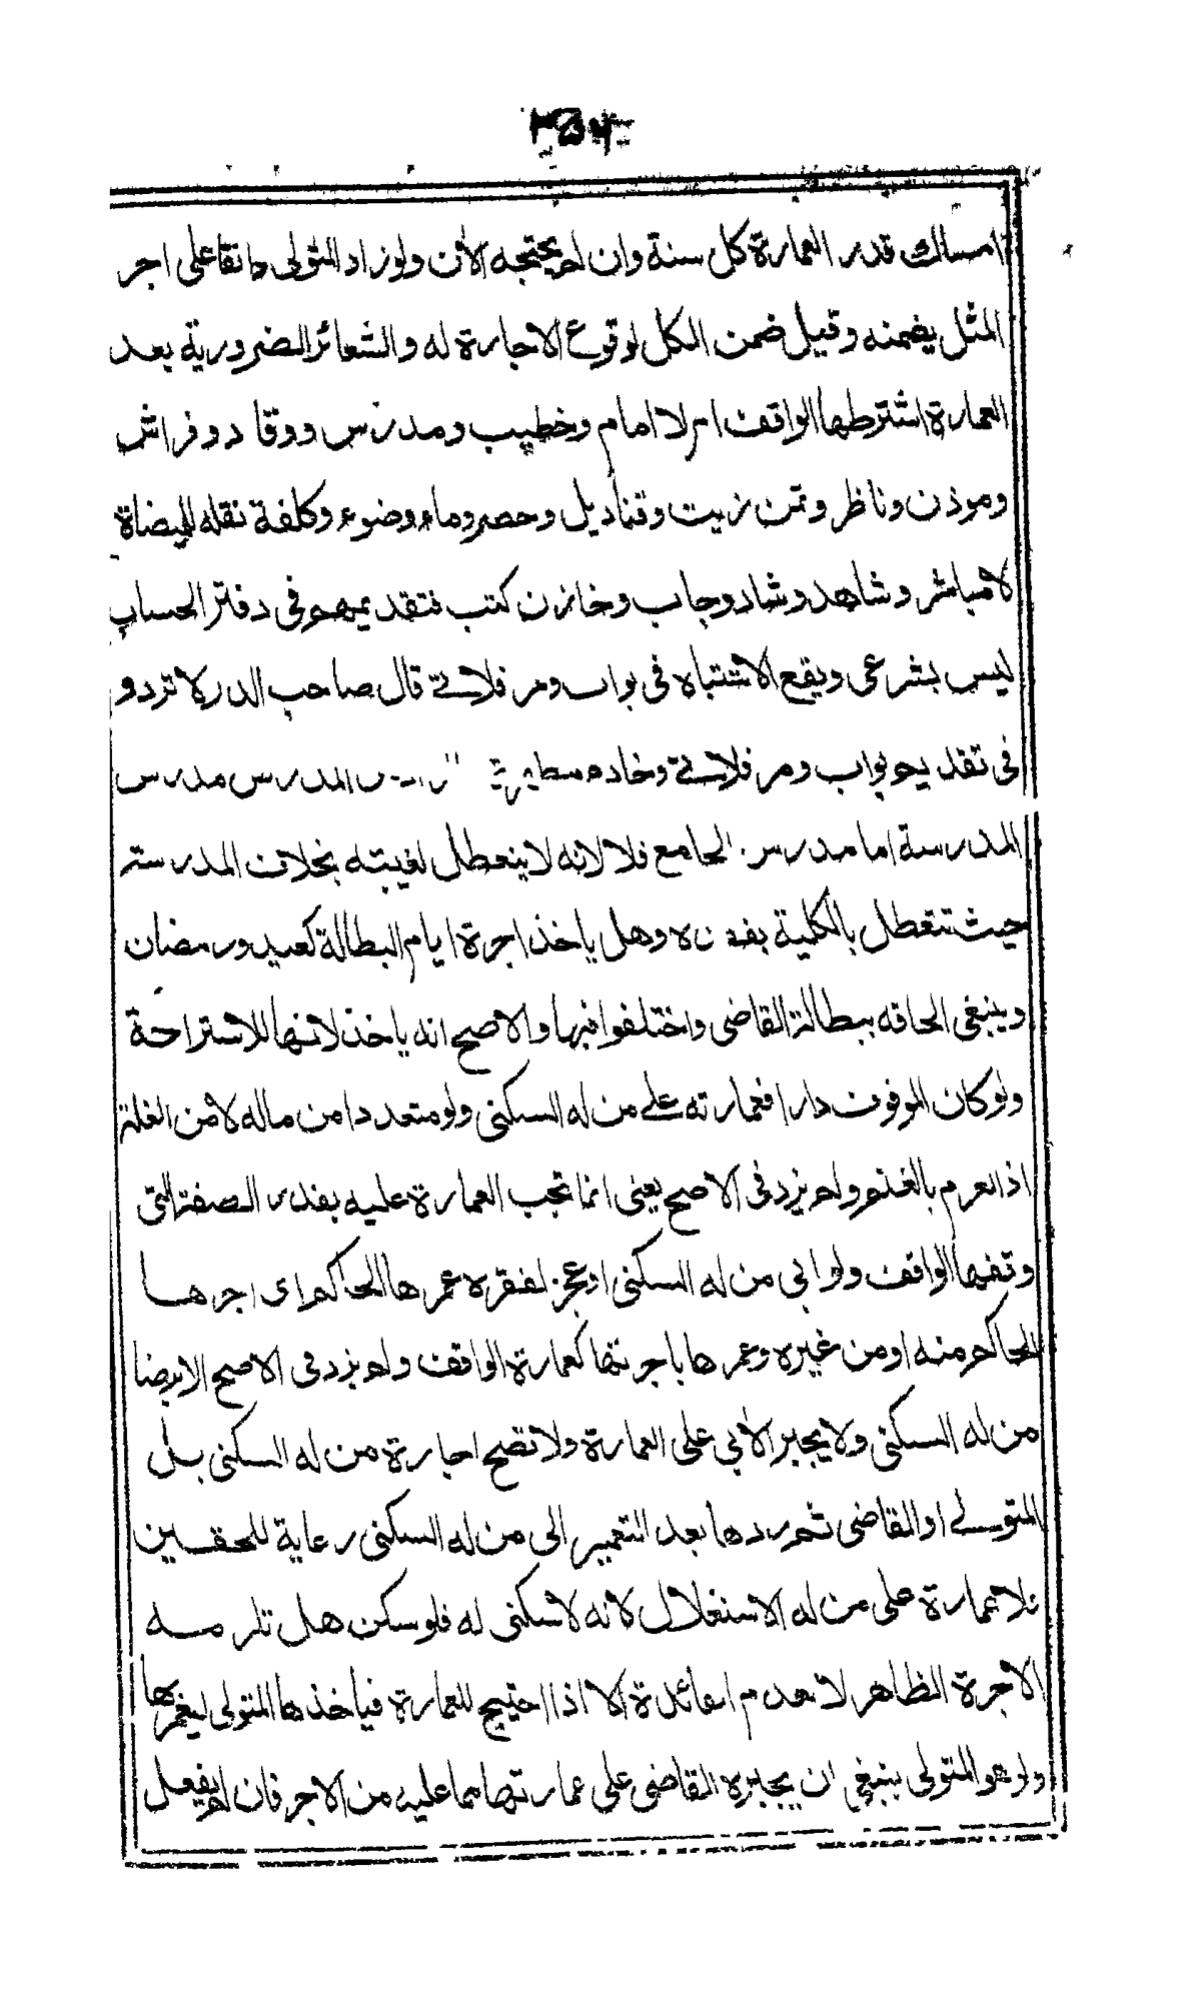 امساك قدر العمارة كل سنة وان لم يحتجه الآن ولو زاد المتولي دانقا على اجر
المثل يضمنه وقيل ضمن الكل لوقوع الاجارة له والشعائر الضرورية بعد
العمارة اشترطها الواقف ام لا امام وخطيب ومدرس ووقاد وفراش
وموذن وناظر وثمن زيت وقناديل وحصر وماء وضوء وكلفة نقله للميضاة
لا مباشر وشاهد وشاد وجاب وخازن كتب فتقديمهم في دفتر الحساب
ليس بشرعي ويقع الاشتباه في بواب ومزملاتي قال صاحب البحر لا تردد
في تقديم بواب ومزملاتي وخادم مطهرة المدرس مدرس
المدرسة اما مدرس الجامع فلا لانه لا يتعطل لغيبته بخلاف المدرسة
حيث تتعطل بالكلية بفقده وهل ياخذ اجرة ايام البطالة كعيد ورمضان
وينبغي الحاقه ببطالة القاضي واختلفوا فيها والاصح انه ياخذ لانها للاستراحة
ولو كان الموقوف دارا فعمارته على من له السكنى ولو متعددا من ماله لا من الغلة
اذ الغرم بالغنم ولم يزد في الاصح يعني انما تجب العمارة عليه بقدر الصفة التي
وقفها الواقف ولو ابى من له السكنى او عجز لفقره عمرها الحاكم اى اجرها
الحاكم منه او من غيره وعمرها باجرتها كعمارة الواقف ولم يزد في الاصح الا برضا
من له السكنى ولا يجبر الآبي على العمارة ولا تصح اجارة من له السكنى بل
المتولي او القاضي ثم ردها بعد التعمير الى من له السكنى رعاية للحقين
فلا عمارة على من له الاستغلال لانه لا سكنى له فلو سكن هل تلزمه
الاجرة الظاهر لا لعدم الفائدة الا اذا احتيج للعمارة فياخذها المتولي ليعمرها
ولو هو المتولي ينبغي ان يجبره القاضي على عمارتها مما عليه من الاجر فان لم يفعل